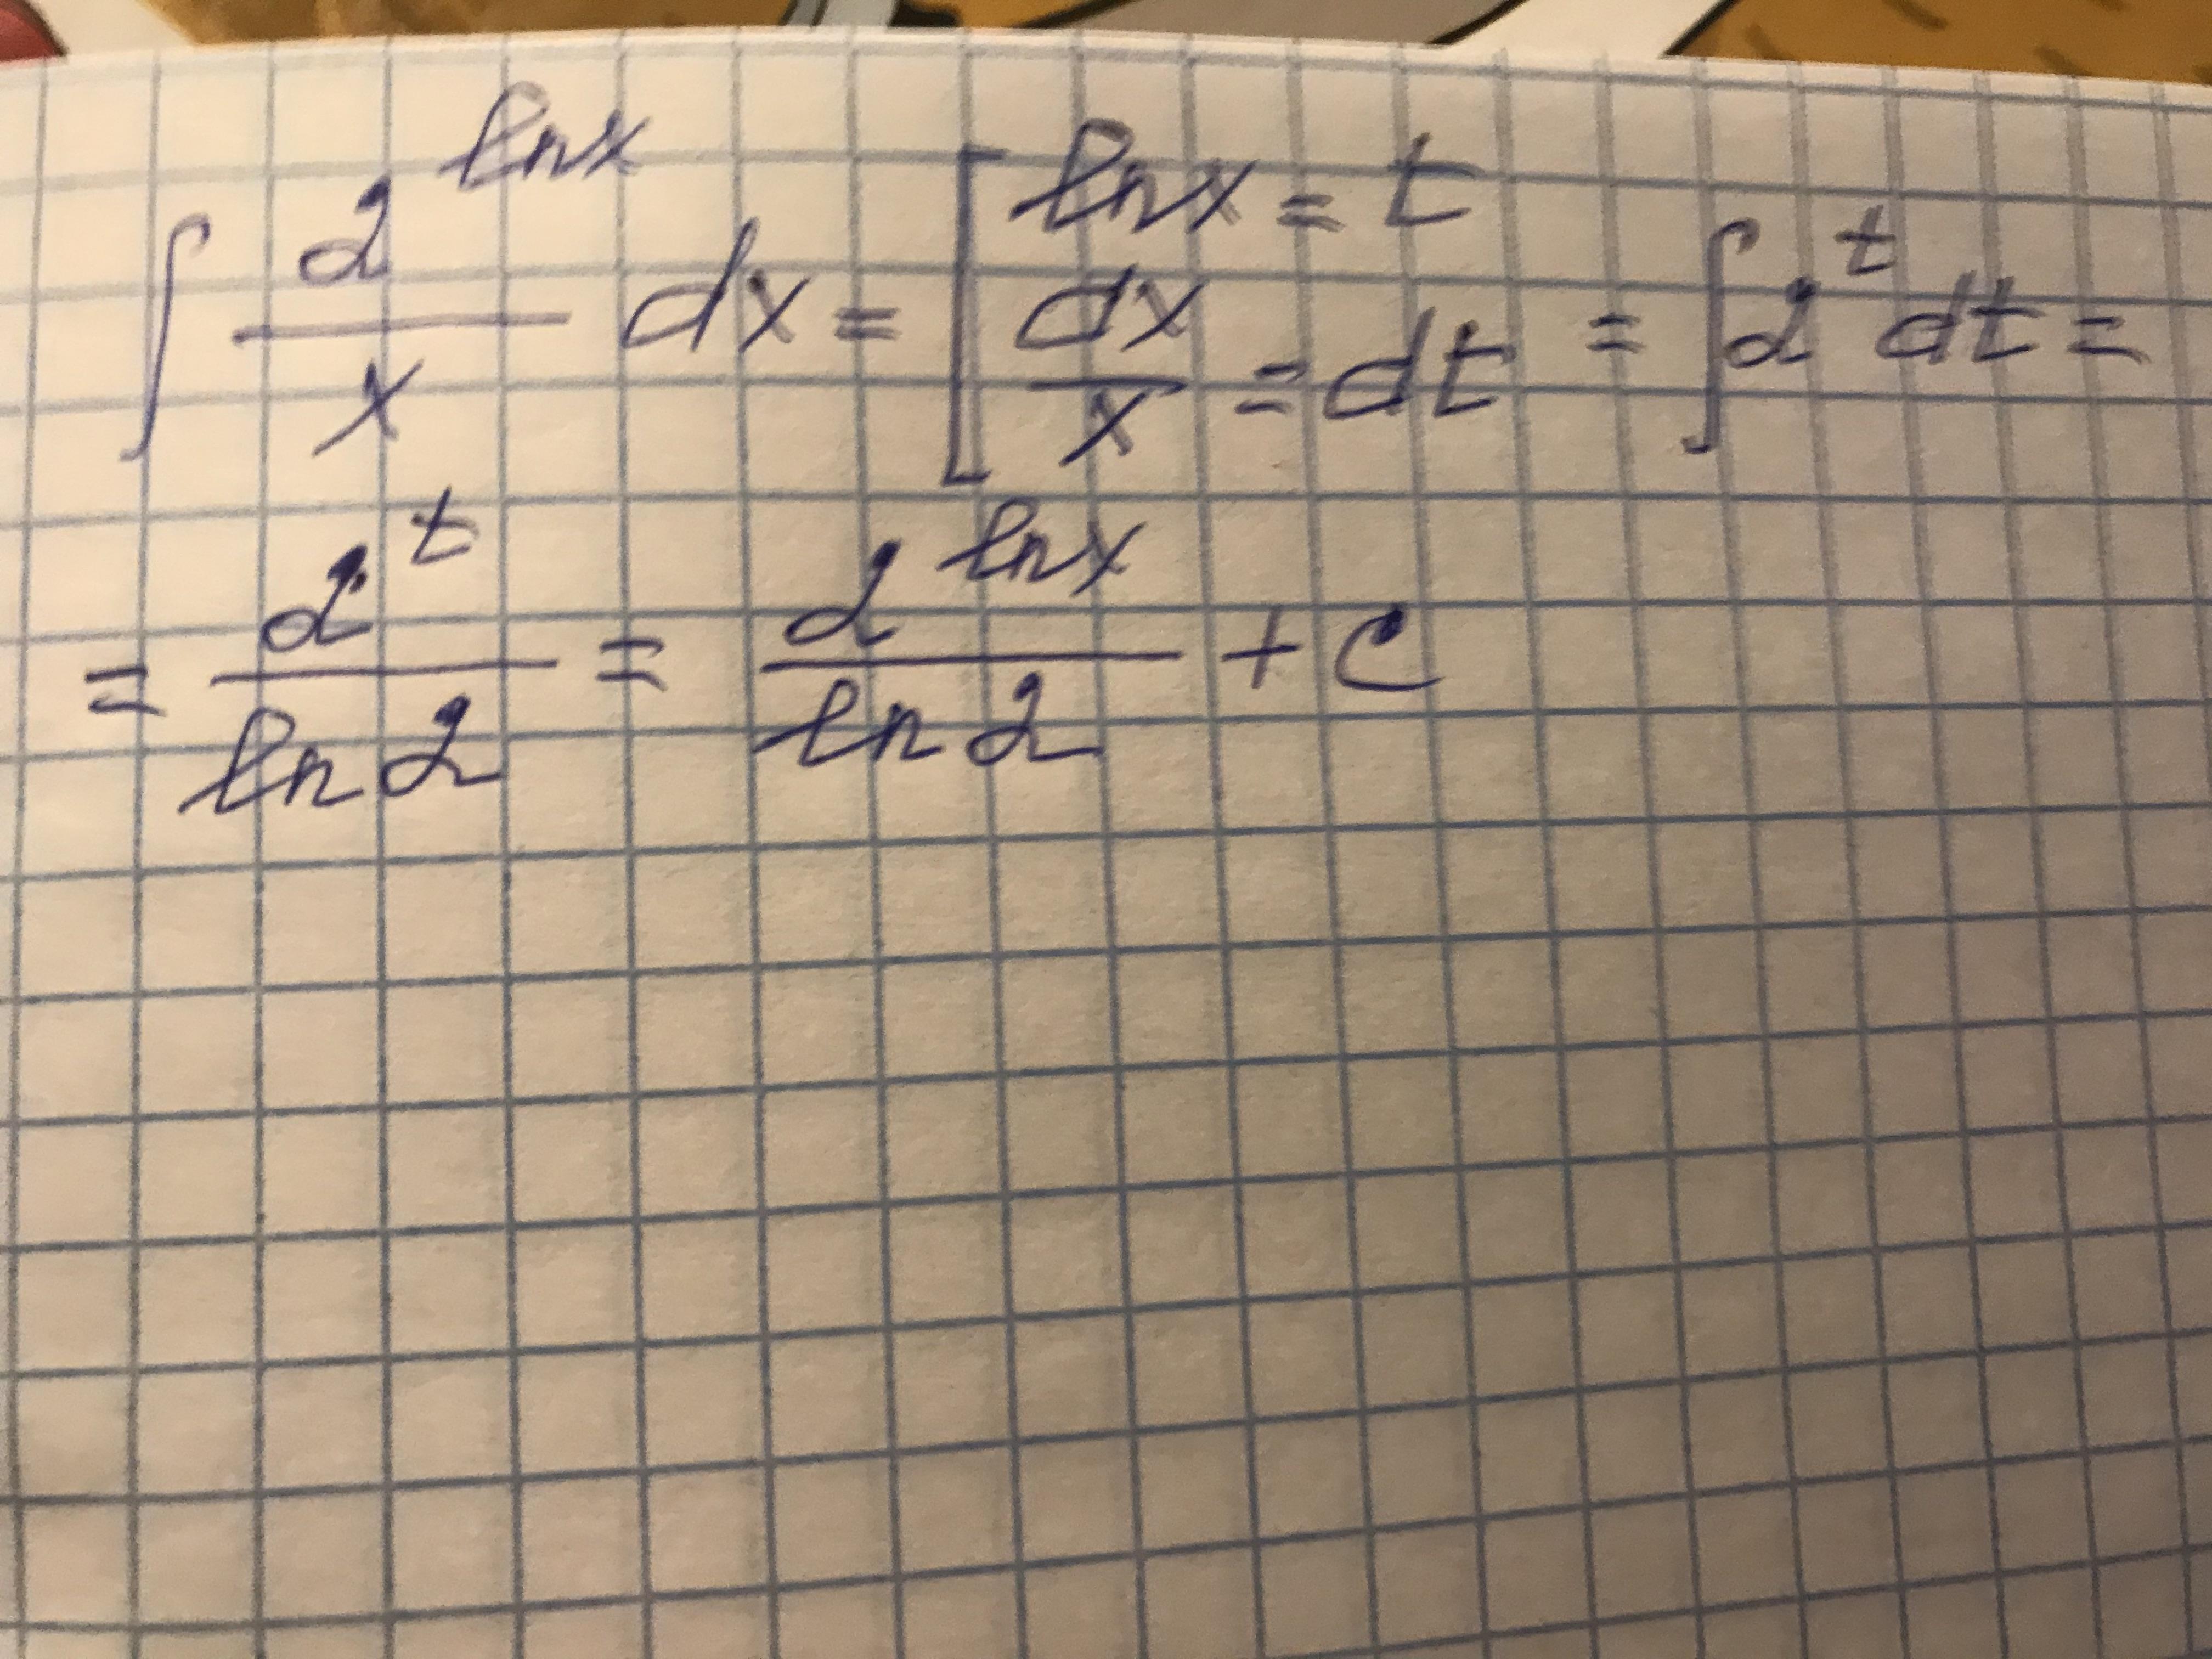 ∫ 2^{lnx}/x dx = [ lnx = t, dx/x = dt = ∫ 2^t dt =
= 2^t/ln2 = 2^{lnx}/ln2 + C